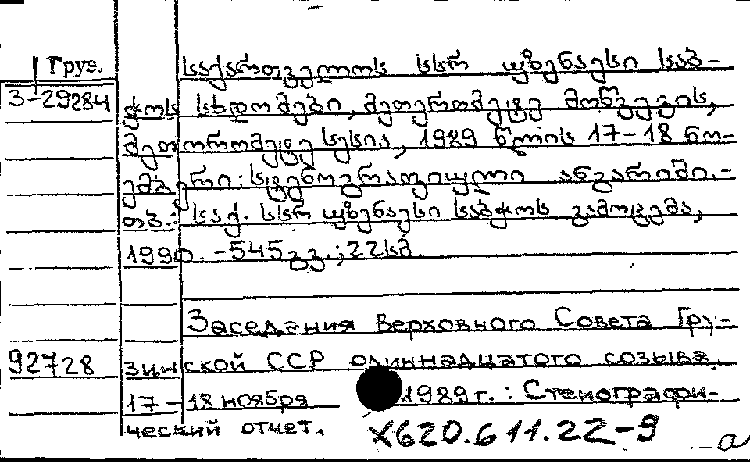 Груз.
საქართველოს სსრ უზენაესი საბ-
3-29284
ჭოს სხდომები, მეთერთმეტე მოწვევის,
მეთორთმეტე სესია, 1989 წლის 17-18 ნო-
ემბერი: სტენოგრაფიული ანგარიში.-
თბ.: საქ. სსრ უზენაესი საბჭოს გამოცემა,
1990. -545 გვ.; 22 სმ
Заседания Верховного Совета Гру-
92728
зинской ССР одиннадцатого созыва,
17-18 ноября 1989г.: Стенографи-
ческий отчет. X620.611.22-9
-а